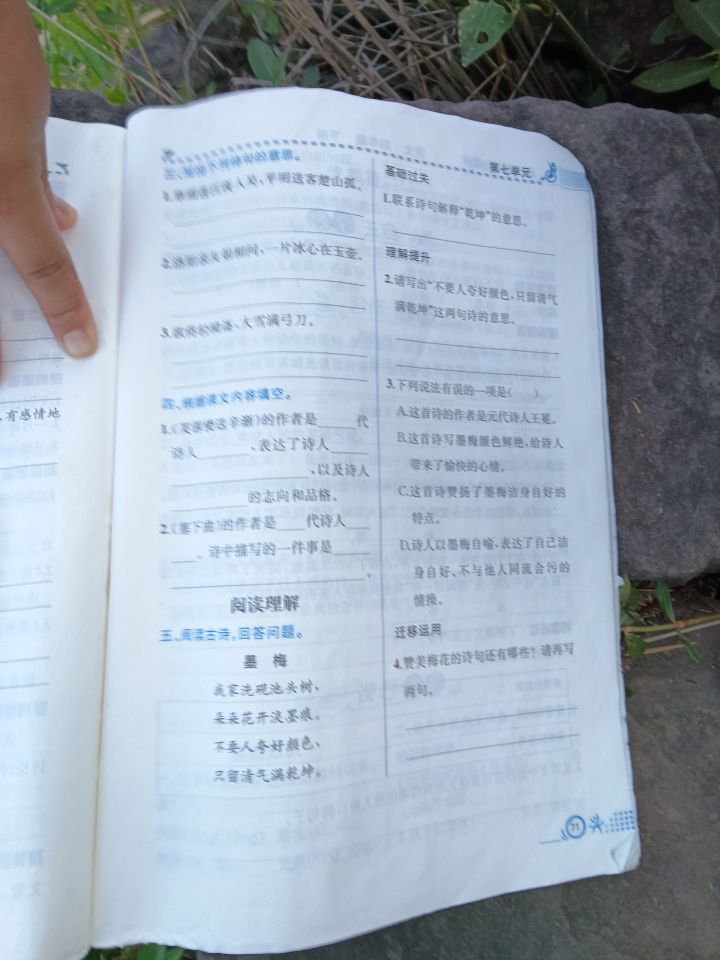 第七单元
三、写出下列诗句的意思。
1.寒雨连江夜入吴,平明送客楚山孤。
2.洛阳亲友如相问,一片冰心在玉壶。
3.欲将轻骑逐,大雪满弓刀。
四、根据课文内容填空。
1.《芙蓉楼送辛渐》的作者是 代
诗人 ,表达了诗人
,以及诗人
的志向和品格。
2.《塞下曲》的作者是 代诗人
。诗中描写的一件事是
。
阅读理解
五、阅读古诗,回答问题。
墨 梅
我家洗砚池头树,
朵朵花开淡墨痕。
不要人夸好颜色,
只留清气满乾坤。
基础过关
1.联系诗句解释“乾坤”的意思。
理解提升
2.请写出“不要人夸好颜色,只留清气
满乾坤”这两句诗的意思。
3.下列说法有误的一项是( )
A.这首诗的作者是元代诗人王冕。
B.这首诗写墨梅颜色鲜艳,给诗人
带来了愉快的心情。
C.这首诗赞扬了墨梅洁身自好的
特点。
D.诗人以墨梅自喻,表达了自己洁
身自好、不与他人同流合污的
情操。
迁移运用
4.赞美梅花的诗句还有哪些?请再写
两句。
71
有感情地